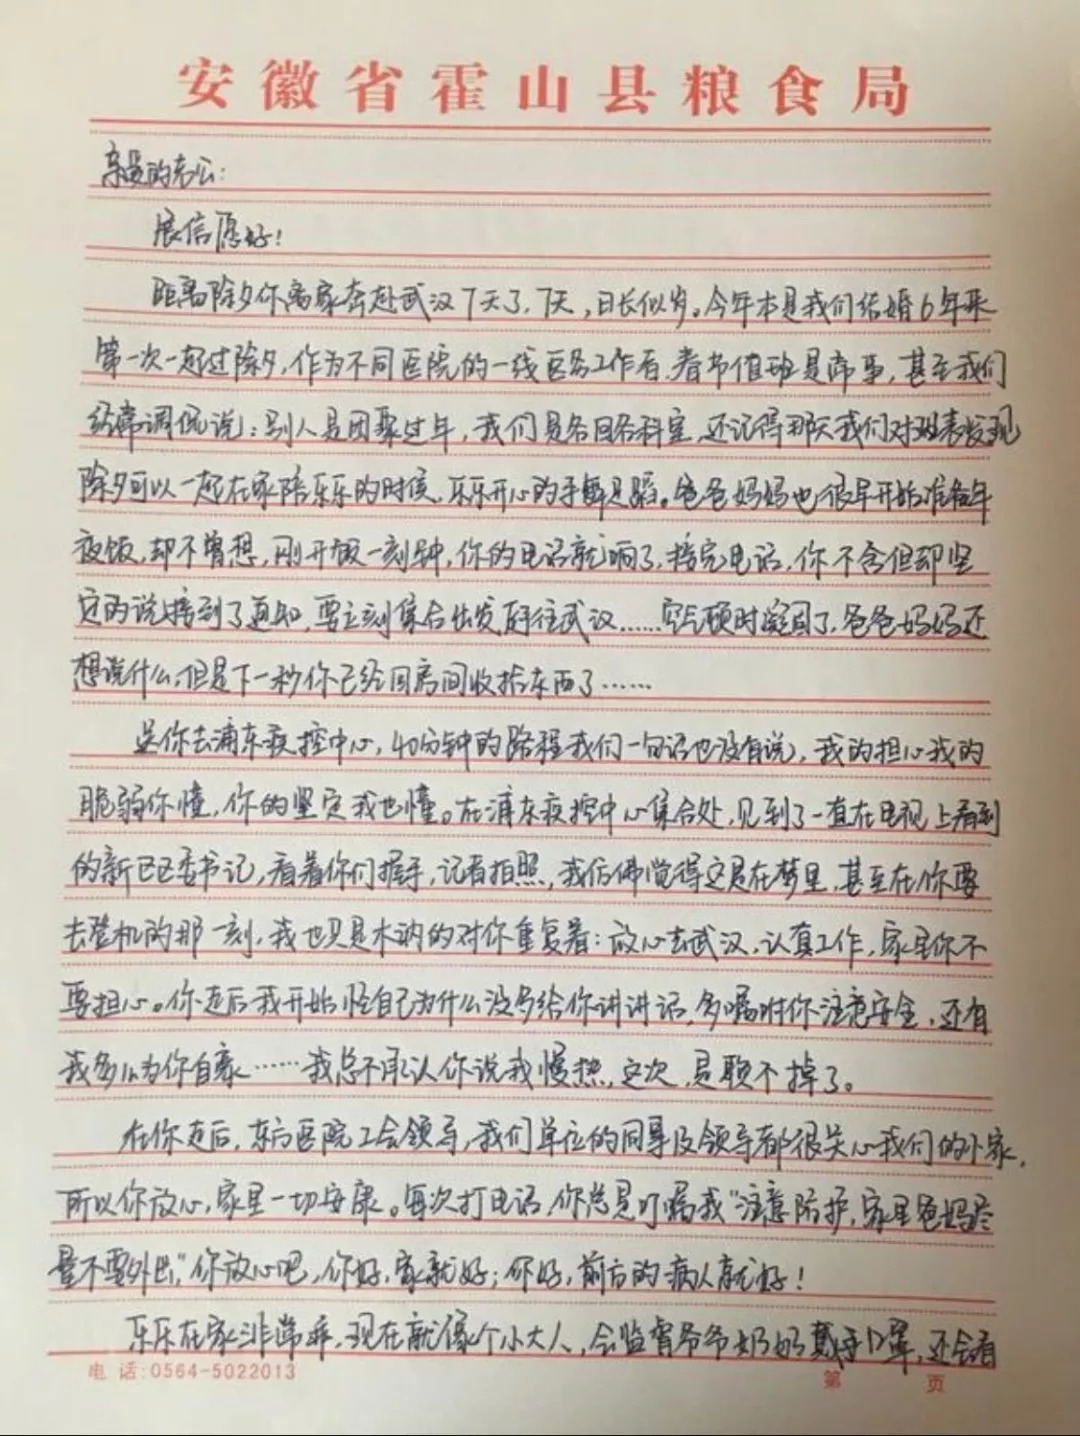 安徽省霍山县粮食局
亲爱的老公:
展信愿好!
距离除夕你离家奔赴武汉7天了,7天,日长似岁。今年本是我们结婚6年来
第一次一起过除夕,作为不同医院的一线医务工作者,春节值班是常事,甚至我们
经常调侃说:别人是团聚过年,我们是各回各科室,还记得那天我们对班表发现
除夕可以一起在家陪乐乐的时候,乐乐开心的手舞足蹈。爸爸妈妈也很早开始准备年
夜饭,却不曾想,刚开饭一刻钟,你的电话就响了,接完电话,你不舍但却坚
定的说接到了通知,要立刻集合出发前往武汉……空气顿时凝固了,爸爸妈妈还
想说什么,但是下一秒你已经回房间收拾东西了……
送你去浦东疾控中心,40分钟的路程我们一句话也没有说,我的担心我的
脆弱你懂,你的坚定我也懂。在浦东疾控中心集合处,见到了一直在电视上看到
的新区区委书记,看着你们握手,记者拍照,我仿佛觉得这是在梦里,甚至在你要
去登机的那一刻,我也只是木讷的对你重复着:放心去武汉,认真工作,家里你不
要担心。你走后我开始怪自己为什么没多给你讲讲话,多嘱咐你注意安全,还有
我多么为你自豪……我总不承认你说我慢热,这次,是赖不掉了。
在你走后,东方医院工会领导,我们单位的同事及领导都很关心我们的小家,
所以你放心,家里一切安康。每次打电话,你总是叮嘱我"注意防护,家里爸妈尽
量不要外出,"你放心吧,你好,家就好;你好,前方的病人就好!
乐乐在家非常乖,现在就像个小大人,会监督爷爷奶奶戴好口罩,还会看
电 话:0564-5022013
第 页